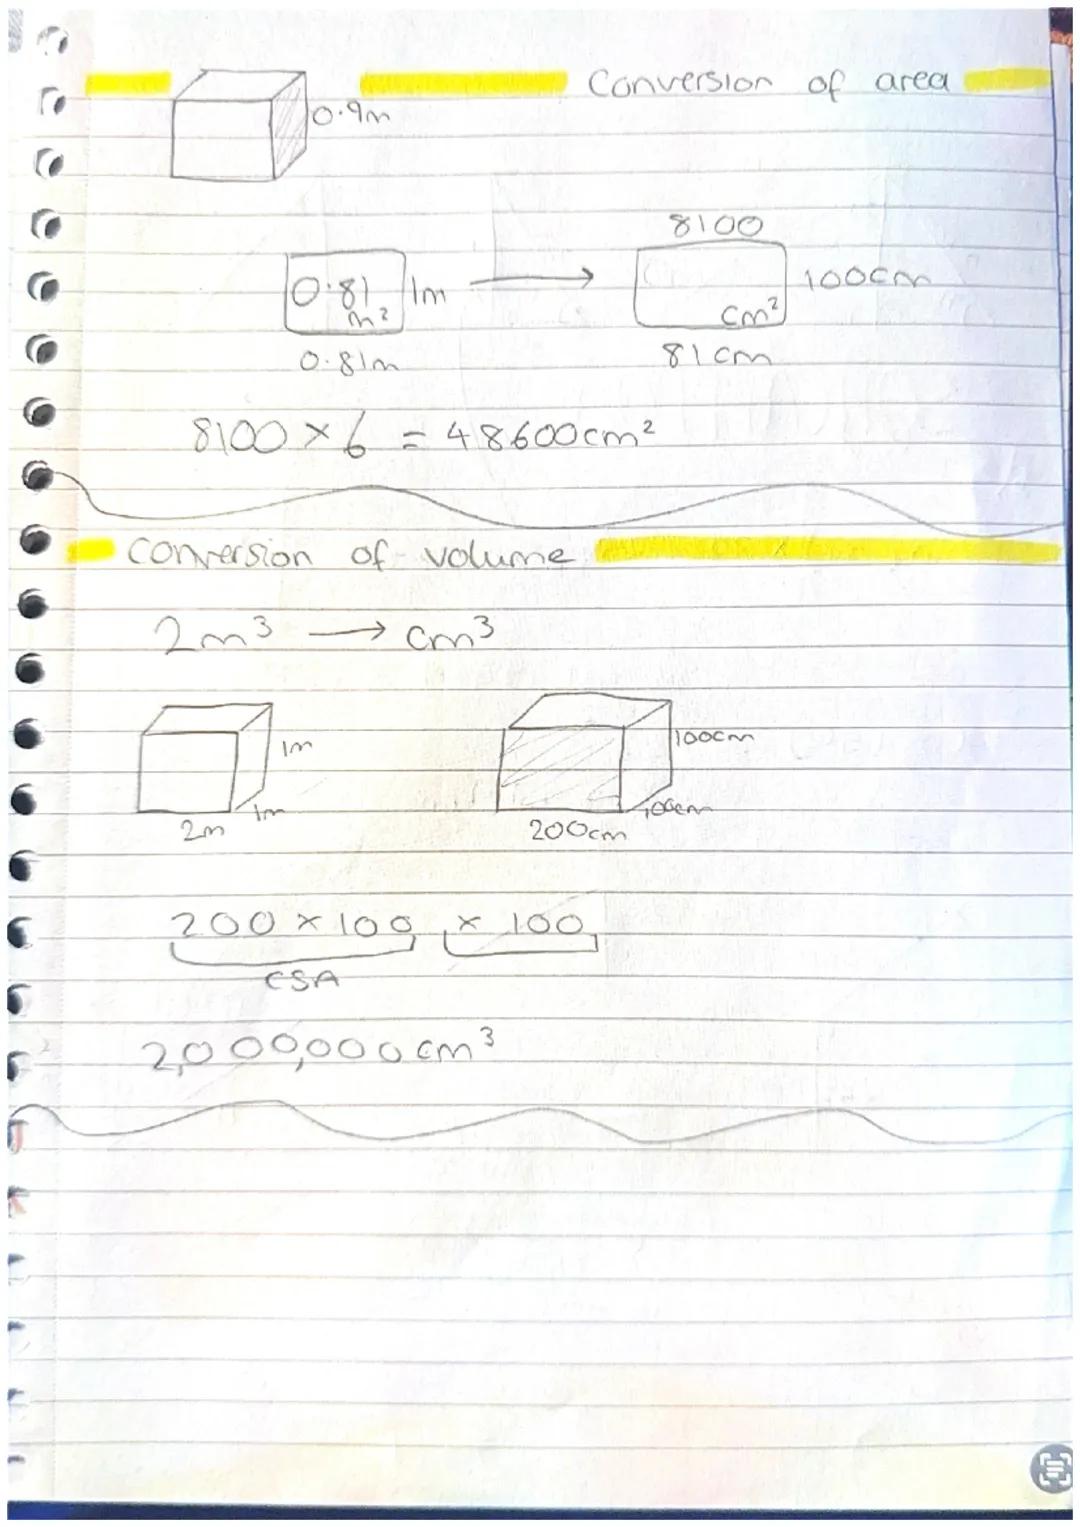 Conversion of area
0.9m
8100
0.81 m² 1m → cm² 100cm
0.81m 81cm
8100 × 6 = 48600cm²
Conversion of volume
2m³ → cm³
1m 100cm
1m 100cm
2m 200cm
200 × 100 × 100
CSA
2,000,000cm³